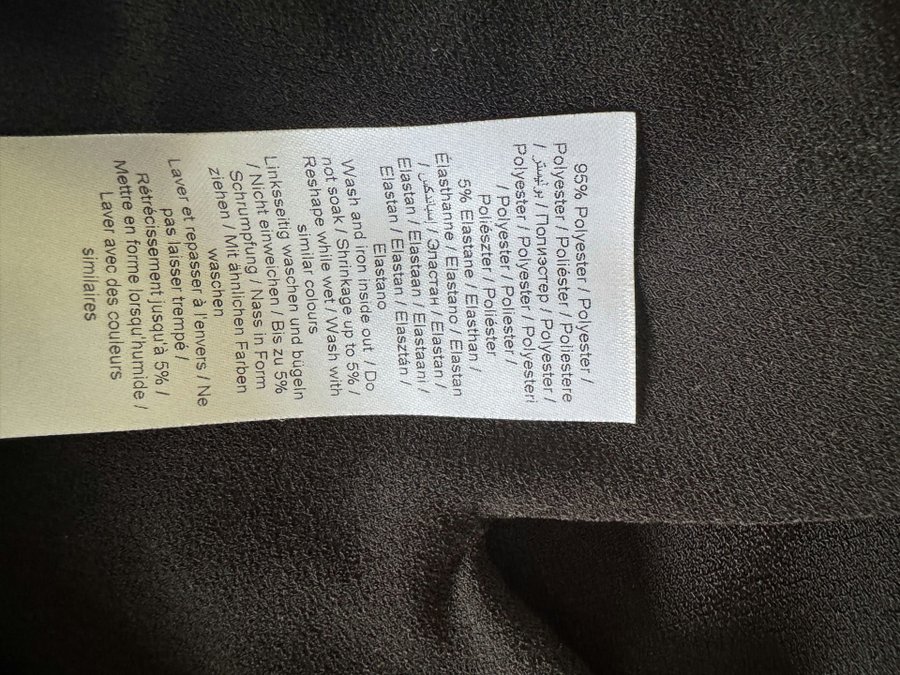 95% Polyester / Polyester /
Polyester / Poliéster / Poliestere
/ بوليستر / Полиэстер / Polyester /
Polyester / Polyester / Polyesteri
/ Polyester / Poliester /
Poliészter / Poliéster
5% Elastane / Elasthan /
Élasthanne / Elastano / Elastan
/ إسباندكس / Эластан / Elastan /
Elastan / Elastaan / Elastaani /
Elastan / Elastan / Elasztán /
Elastano
Wash and iron inside out / Do
not soak / Shrinkage up to 5% /
Reshape while wet / Wash with
similar colours
Linksseitig waschen und bügeln
/ Nicht einweichen / Bis zu 5%
Schrumpfung / Nass in Form
ziehen / Mit ähnlichen Farben
waschen
Laver et repasser à l'envers / Ne
pas laisser trempé /
Rétrécissement jusqu'à 5% /
Mettre en forme lorsqu'humide /
Laver avec des couleurs
similaires